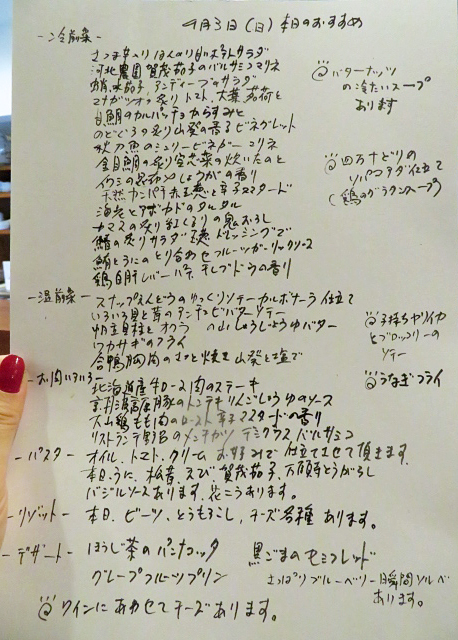 9月3日(日)本日のおすすめ
-冷前菜-
さつま芋入り ほんのり甘いポテトサラダ
河北農園 賀茂茄子のバルサミコマリネ
蛸、水茄子、アンディーブのサラダ
マナガツオの炙り トマト、大葉、茗荷と
白鯛のカルパッチョ からすみと
のどぐろの炙り 山葵の香るビネグレット
秋刀魚のシェリービネガーマリネ
金目鯛の炙り 空芯菜の炊いたのと
イワシの しょうがの香り
天然カンパチ 赤玉葱と辛子マスタード
海老とアボカドのタルタル
カマスの炙り 紅くるりの鬼おろし
鰆の炙りサラダ 玉葱ドレッシングで
鮪とうにの とり合わせ フルーツガーリックソース
鶏白肝レバーパテ 干しブドウの香り
@バターナッツ
の冷たいスープ
あります
@四万十どりの
ソパコアダ仕立て
(鶏のグラタンスープ)
-温前菜-
スナップえんどうのゆっくりソテー カルボナーラ仕立て
いろいろ貝と茸のアンチョビバターソテー
帆立貝柱とオクラ の山しょうじょうゆバター
ワカサギのフライ
合鴨胸肉のさっと焼き 山葵と塩で
@子持ちヤリイカ
とブロッコリーの
ソテー
@うなぎフライ
-お肉いろいろ-
北海道産 牛ロース肉のステーキ
京丹波高原豚のトンテキ りんごしょうゆのソース
大山鶏もも肉のロースト 辛子マスタードの香り
リストランテ野呂のメンチカツ デミグラスバルサミコ
-パスタ-
オイル、トマト、クリーム お好みで仕立てさせて頂きます
本日、うに、松茸、えび、賀茂茄子、万願寺とうがらし
バジルソースあります、花こうあります。
-リゾット-
本日、ビーツ、とうもろこし、チーズ各種 あります。
-デザート-
ほうじ茶のパンナコッタ
黒ごまのセミフレッド
グレープフルーツプリン
さっぱりブルーベリー瞬間ソルベ
あります。
@ワインにあわせてチーズあります。